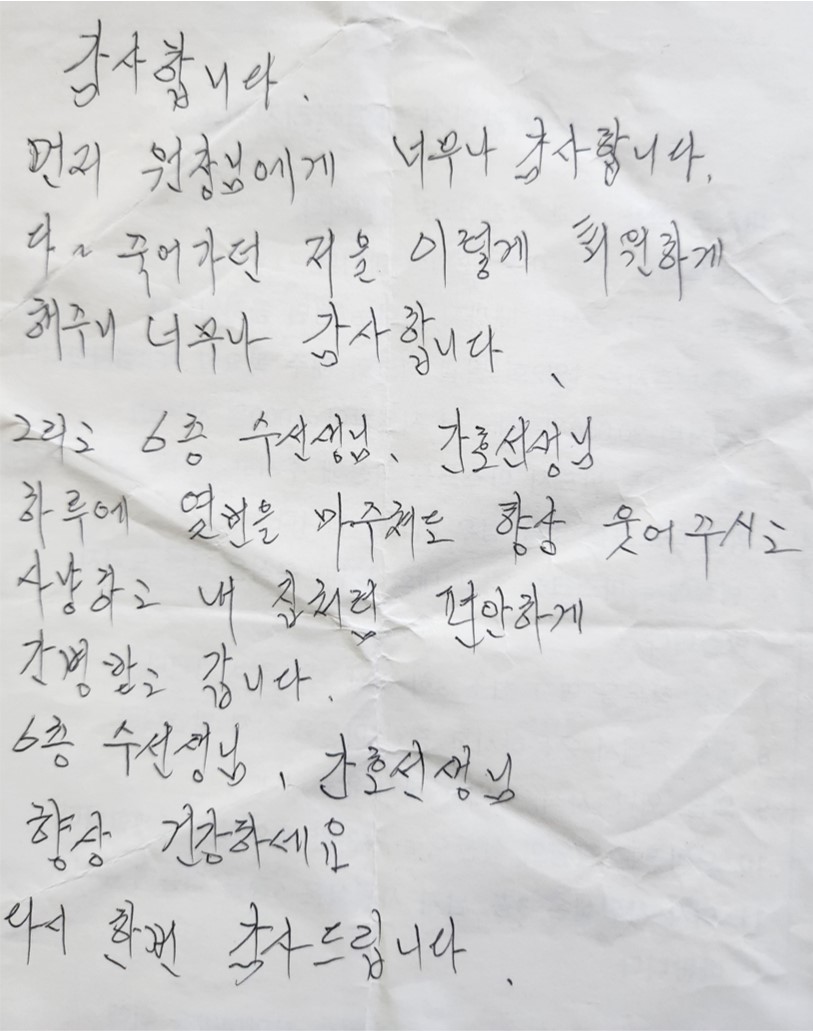 감사합니다.
먼저 원장님에게 너무나 감사합니다.
다~ 죽어가던 저을 이렇게 퇴원하게
해주니 너무나 감사합니다.
그리고 6층 수선생님, 간호선생님
하루에 열번을 마주쳐도 향상 웃어주시고
사냥하고 내 집처럼 편안하게
간병할고 갑니다.
6층 수선생님, 간호선생님
향상 건강하세요
다시 한번 감사드립니다.